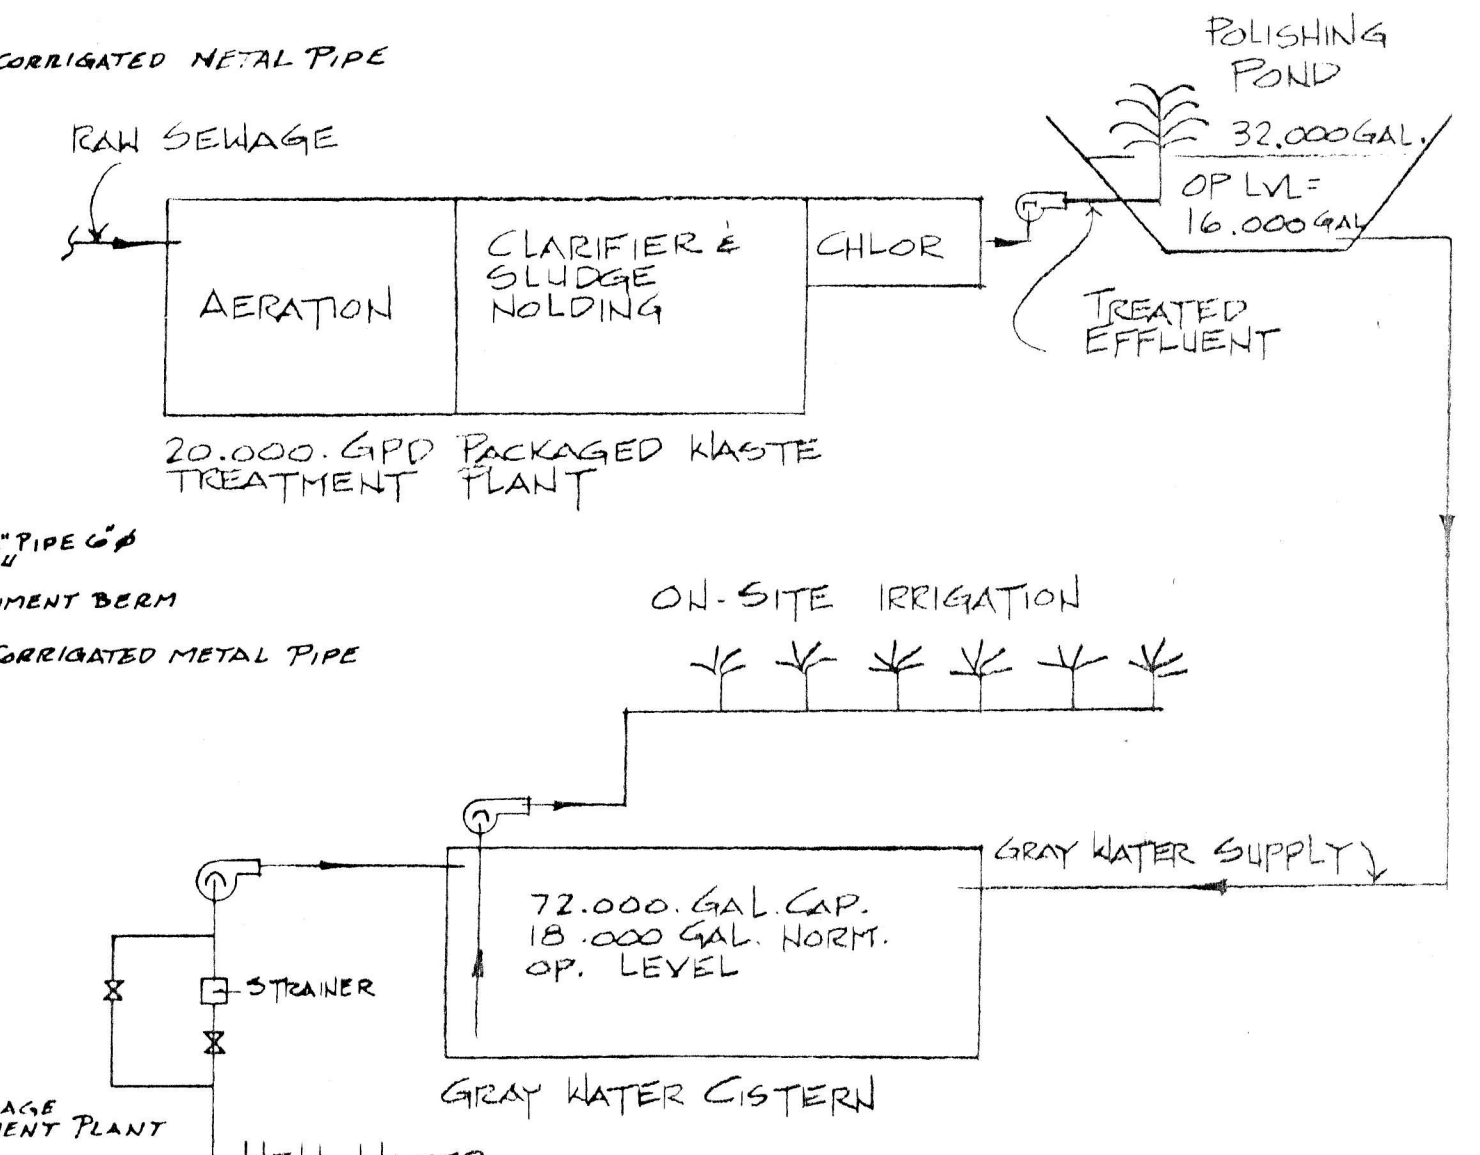 CORRIGATED METAL PIPE
RAW SEWAGE
POLISHING
POND
32.000 GAL.
OP LVL=
16.000 GAL
AERATION
CLARIFIER &
SLUDGE
NOLDING
CHLOR
TREATED
EFFLUENT
20.000. GPD PACKAGED WASTE
TREATMENT PLANT
" PIPE 6" ø
MENT BERM
CORRIGATED METAL PIPE
ON-SITE IRRIGATION
GRAY WATER SUPPLY
72.000. GAL. CAP.
18.000 GAL. NORM.
OP. LEVEL
STRAINER
GRAY WATER CISTERN
AGE
MENT PLANT